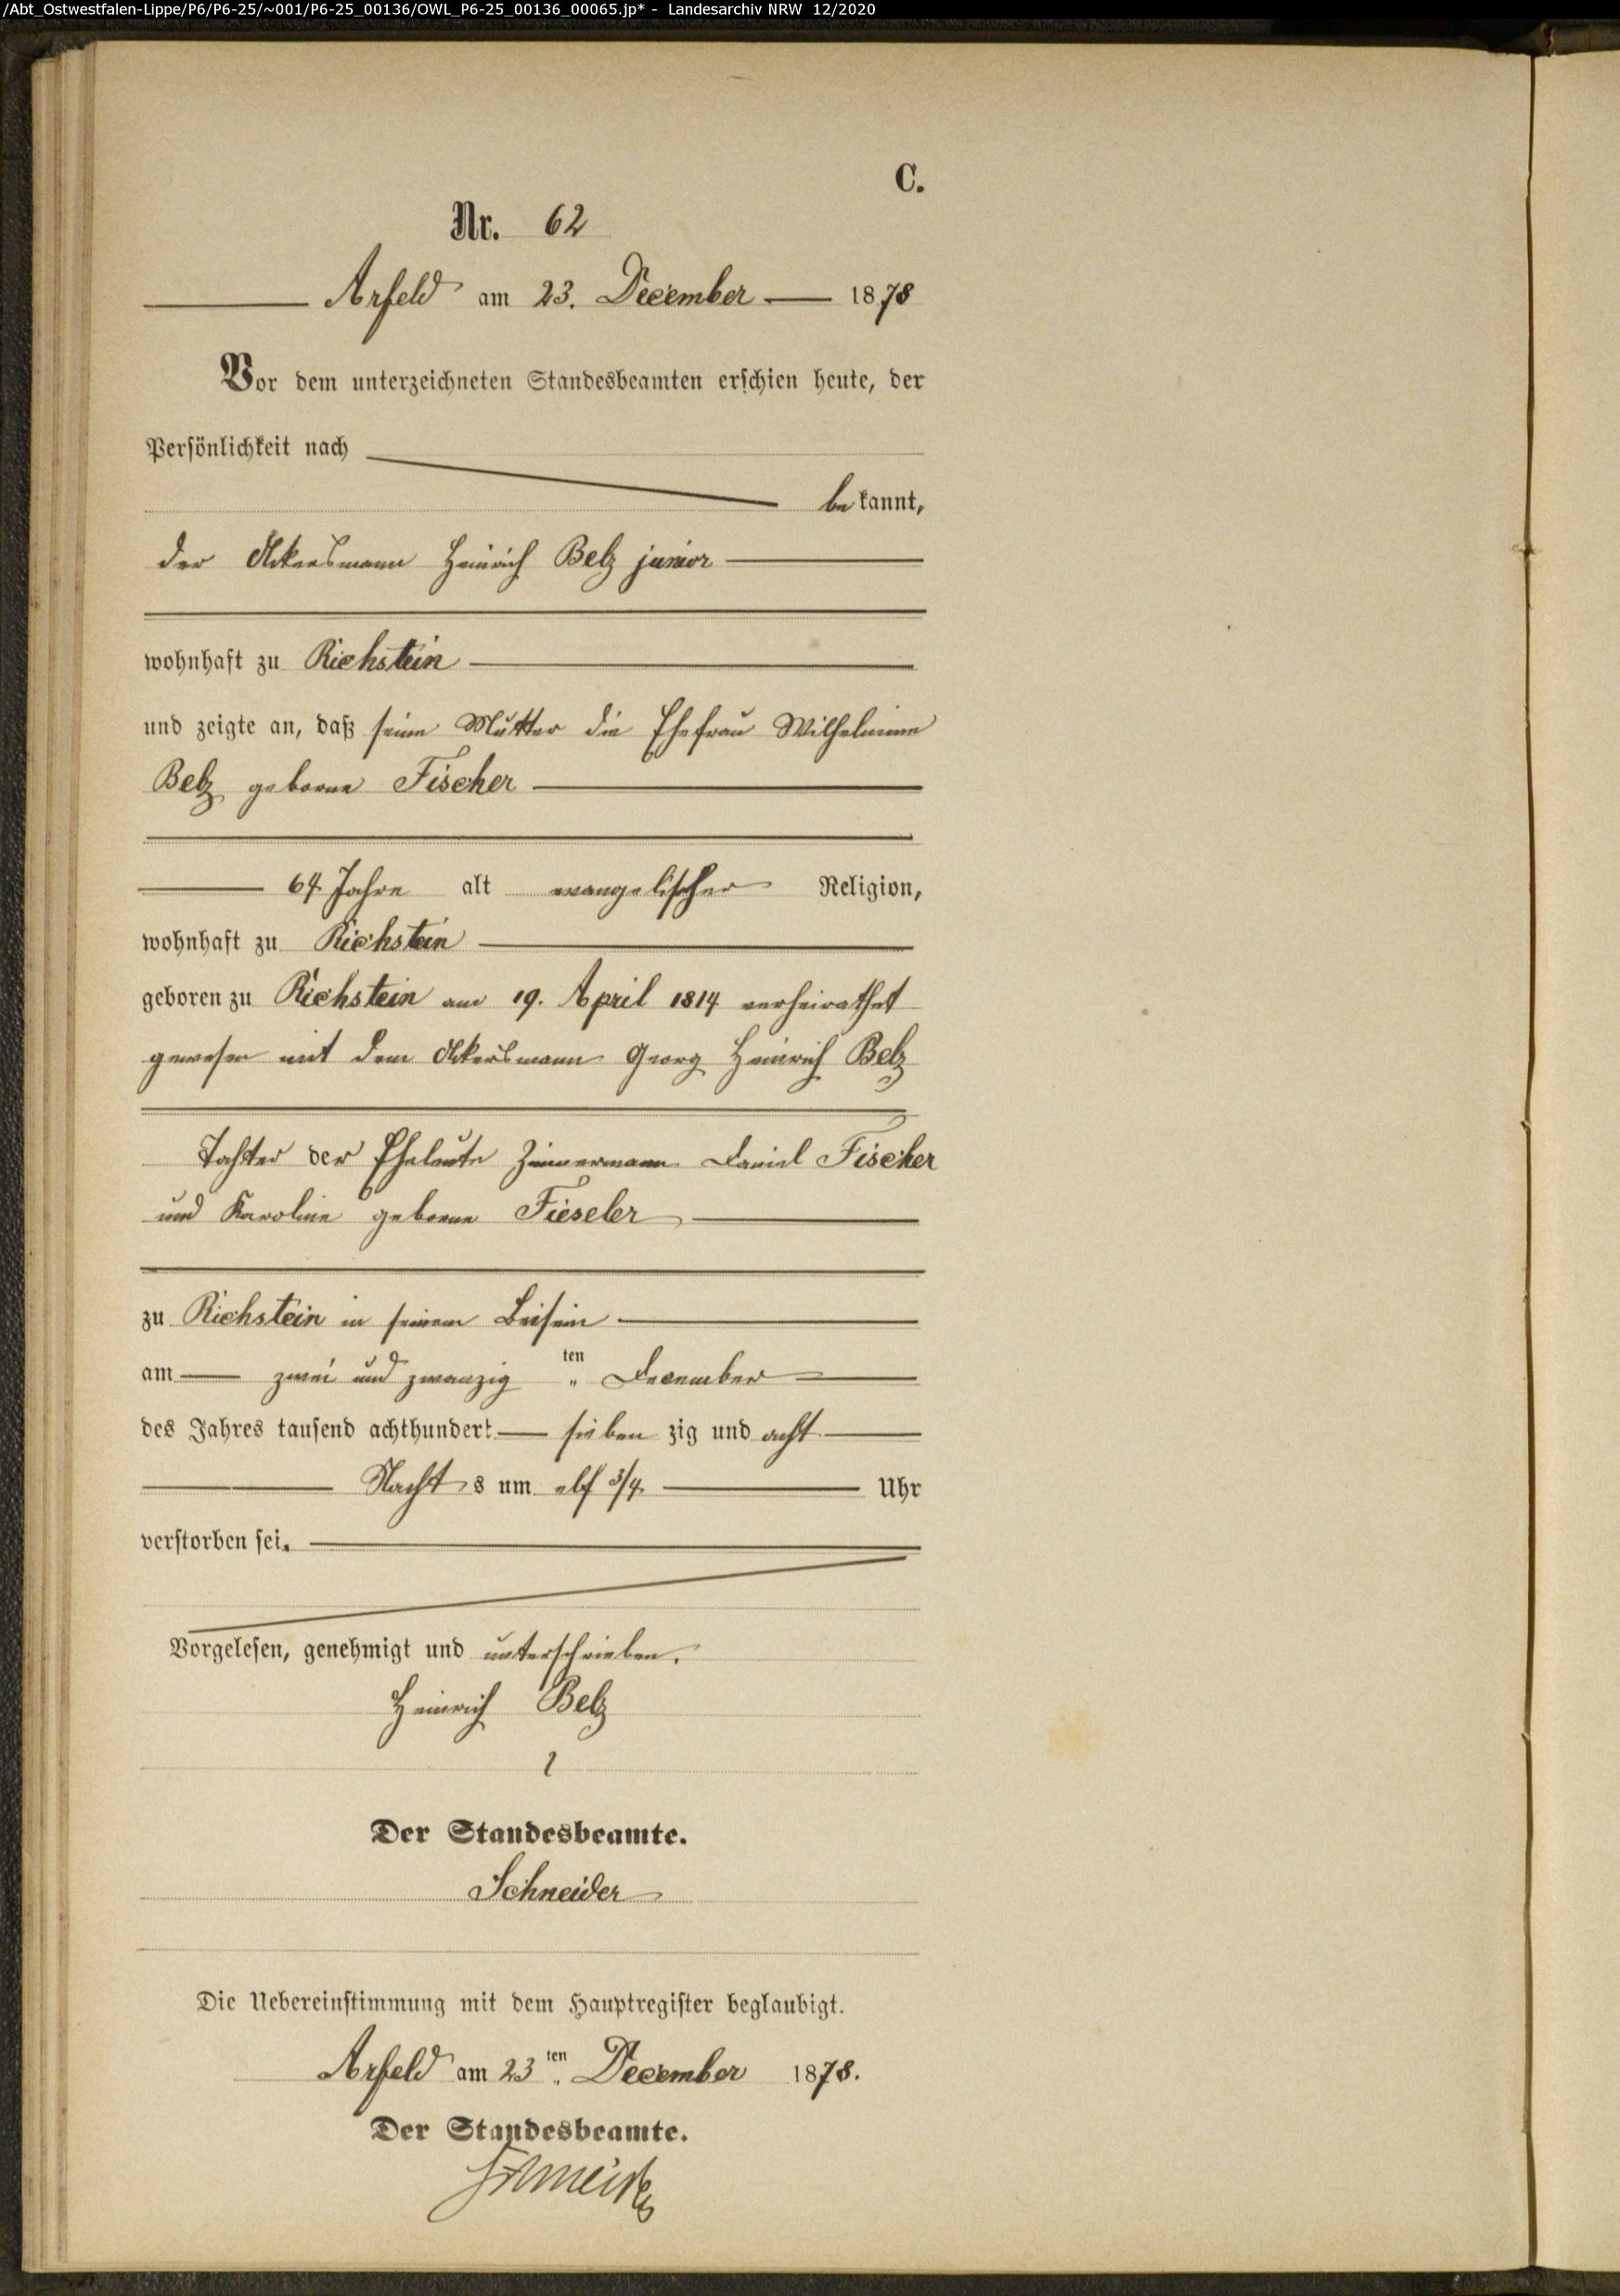 /Abt_Ostwestfalen-Lippe/P6/P6-25/~001/P6-25_00136/OWL_P6-25_00136_00065.jp* - Landesarchiv NRW 12/2020
C.
Nr. 62
Arfeld am 23. December 1878
Vor dem unterzeichneten Standesbeamten erschien heute, der
Persönlichkeit nach
bekannt,
der Ackersmann Heinrich Belz junior
wohnhaft zu Richstein
und zeigte an, daß seine Mutter die Ehefrau Wilhelmine
Belz geborne Fischer
64 Jahre alt evangelischer Religion,
wohnhaft zu Richstein
geboren zu Richstein am 19. April 1814 verheirathet
gewesen mit dem Ackersmann Georg Heinrich Belz
Tochter der Eheleute Zimmermann Daniel Fischer
und Karoline geborne Fieseler
zu Richstein in seinem Beisein
am zwei und zwanzig ten December
des Jahres tausend achthundert sieben zig und acht
Nachts um elf 3/4 Uhr
verstorben sei.
Vorgelesen, genehmigt und unterschrieben.
Heinrich Belz
Der Standesbeamte.
Schneider
Die Uebereinstimmung mit dem Hauptregister beglaubigt.
Arfeld am 23ten December 1878.
Der Standesbeamte.
Schneider